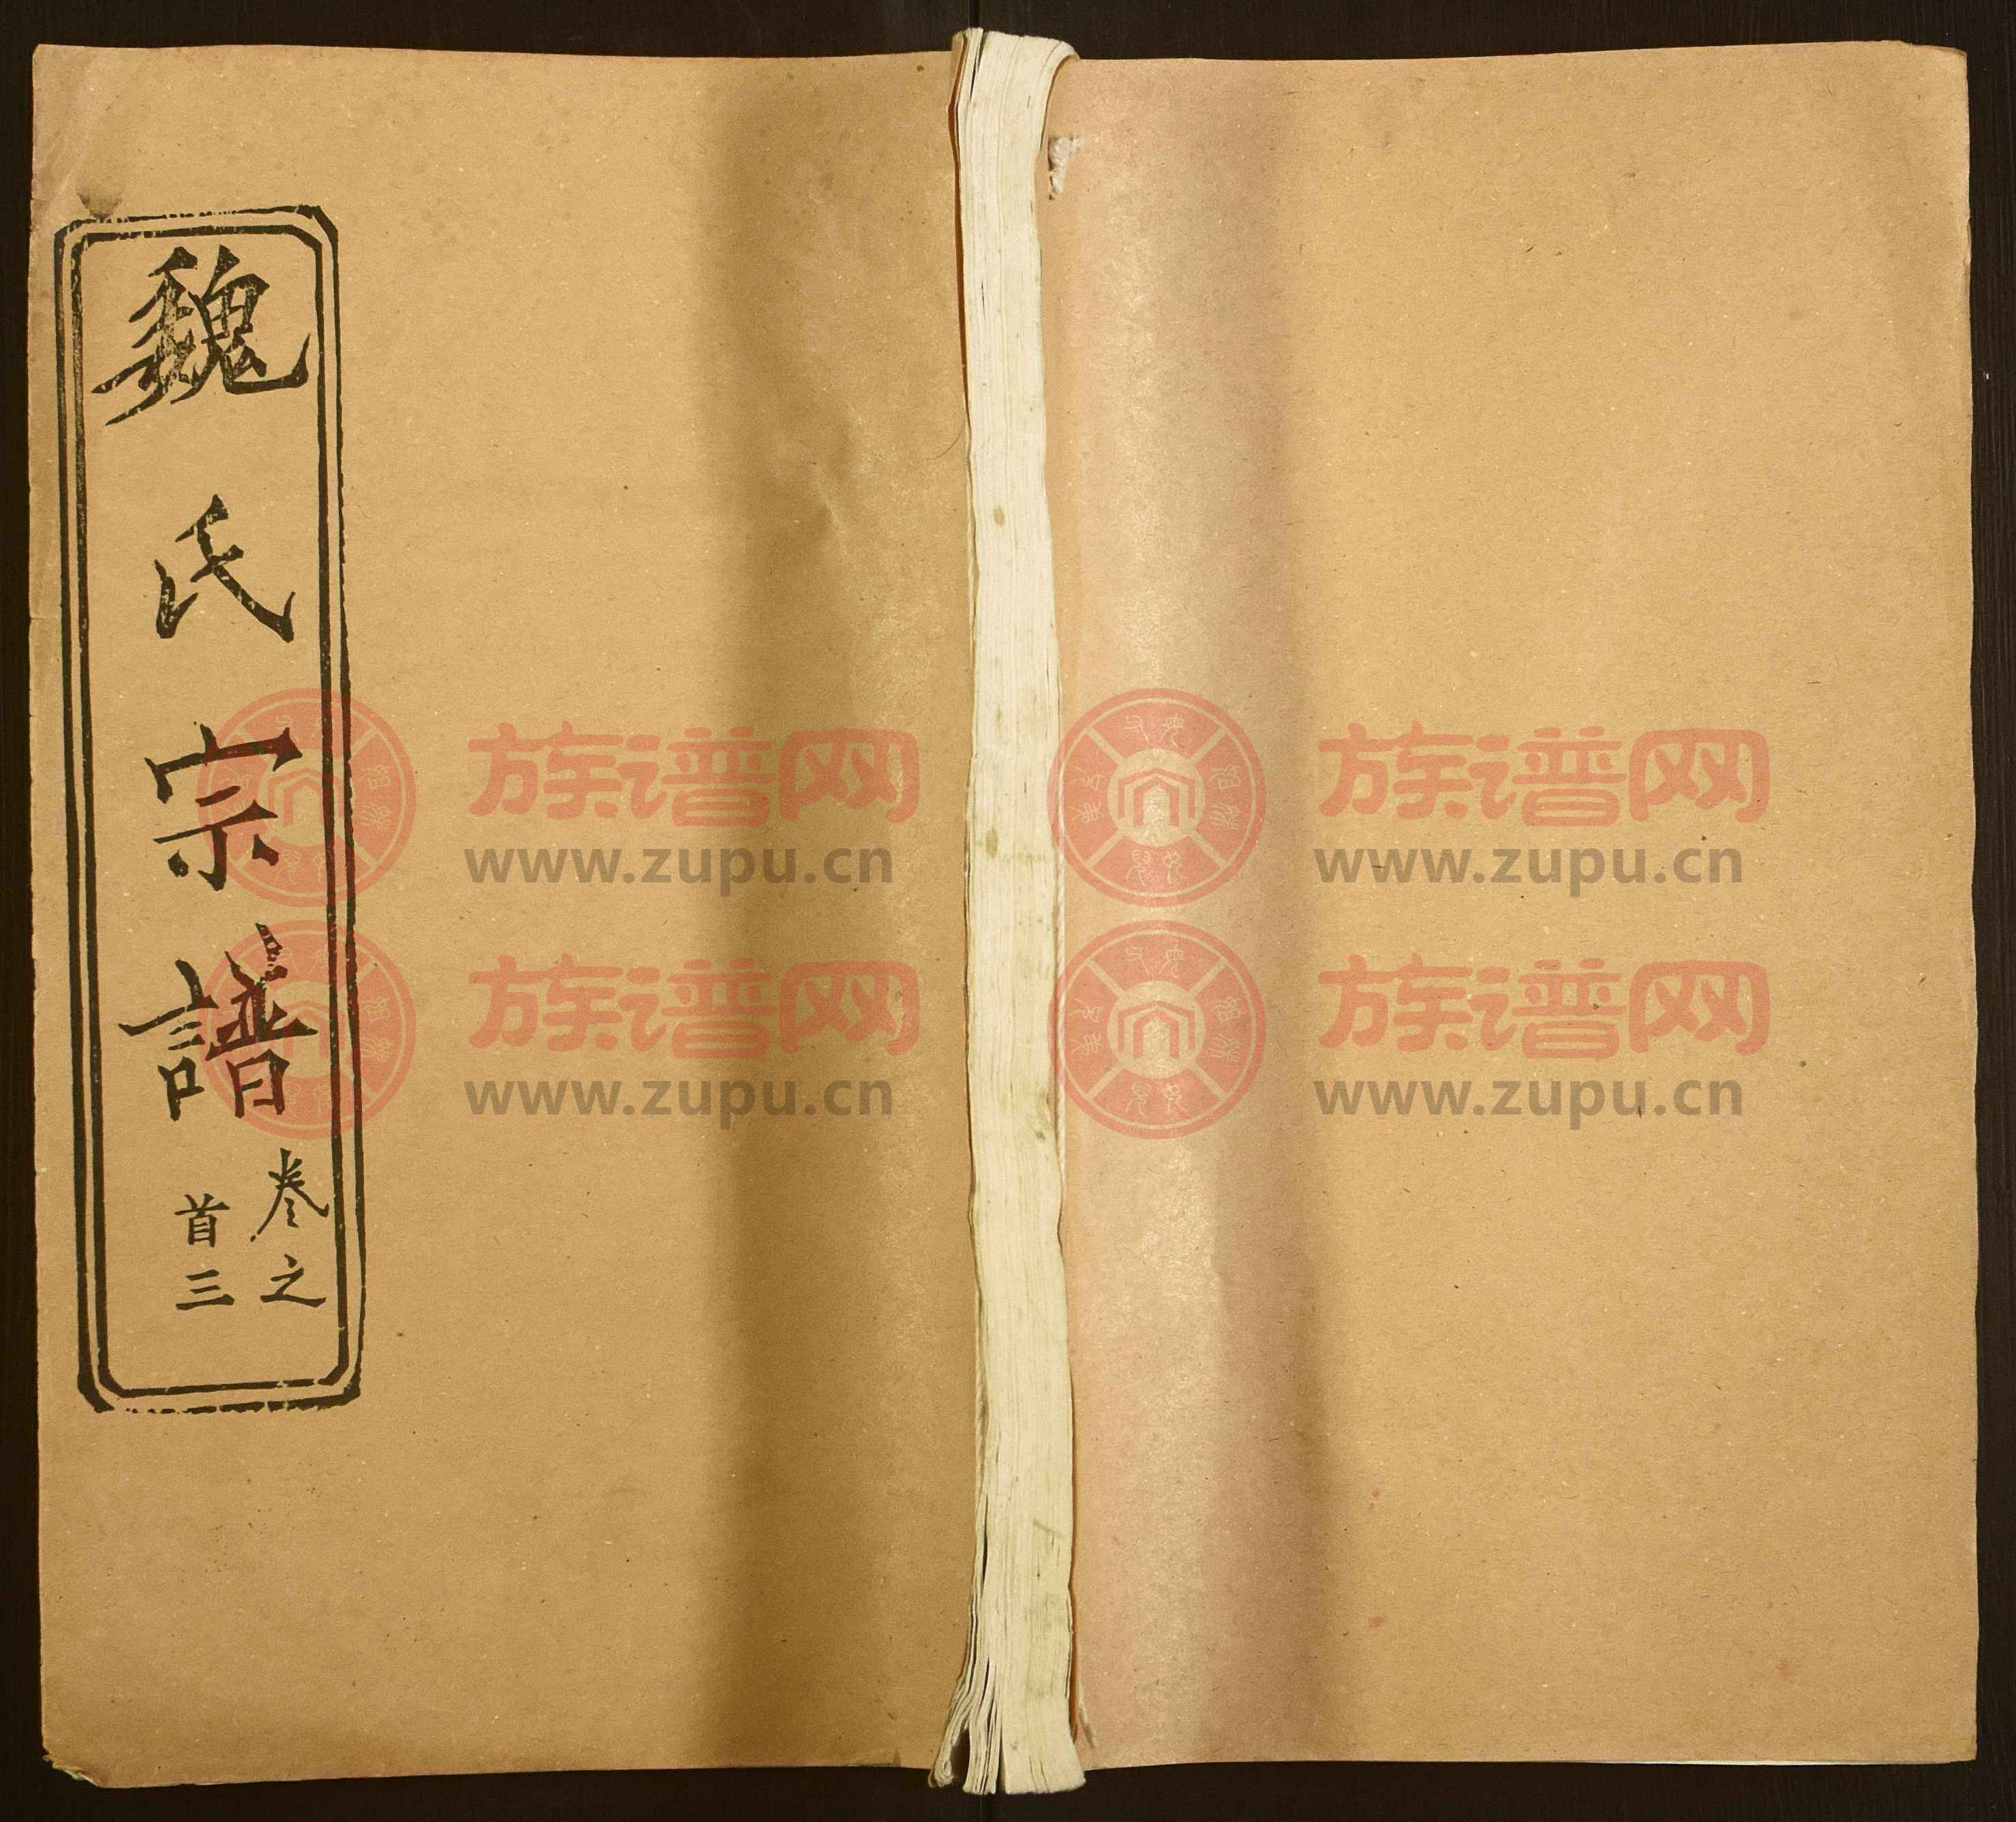 魏氏宗譜
卷之
首三
族谱网
www.zupu.cn
族谱网
www.zupu.cn
族谱网
www.zupu.cn
族谱网
www.zupu.cn